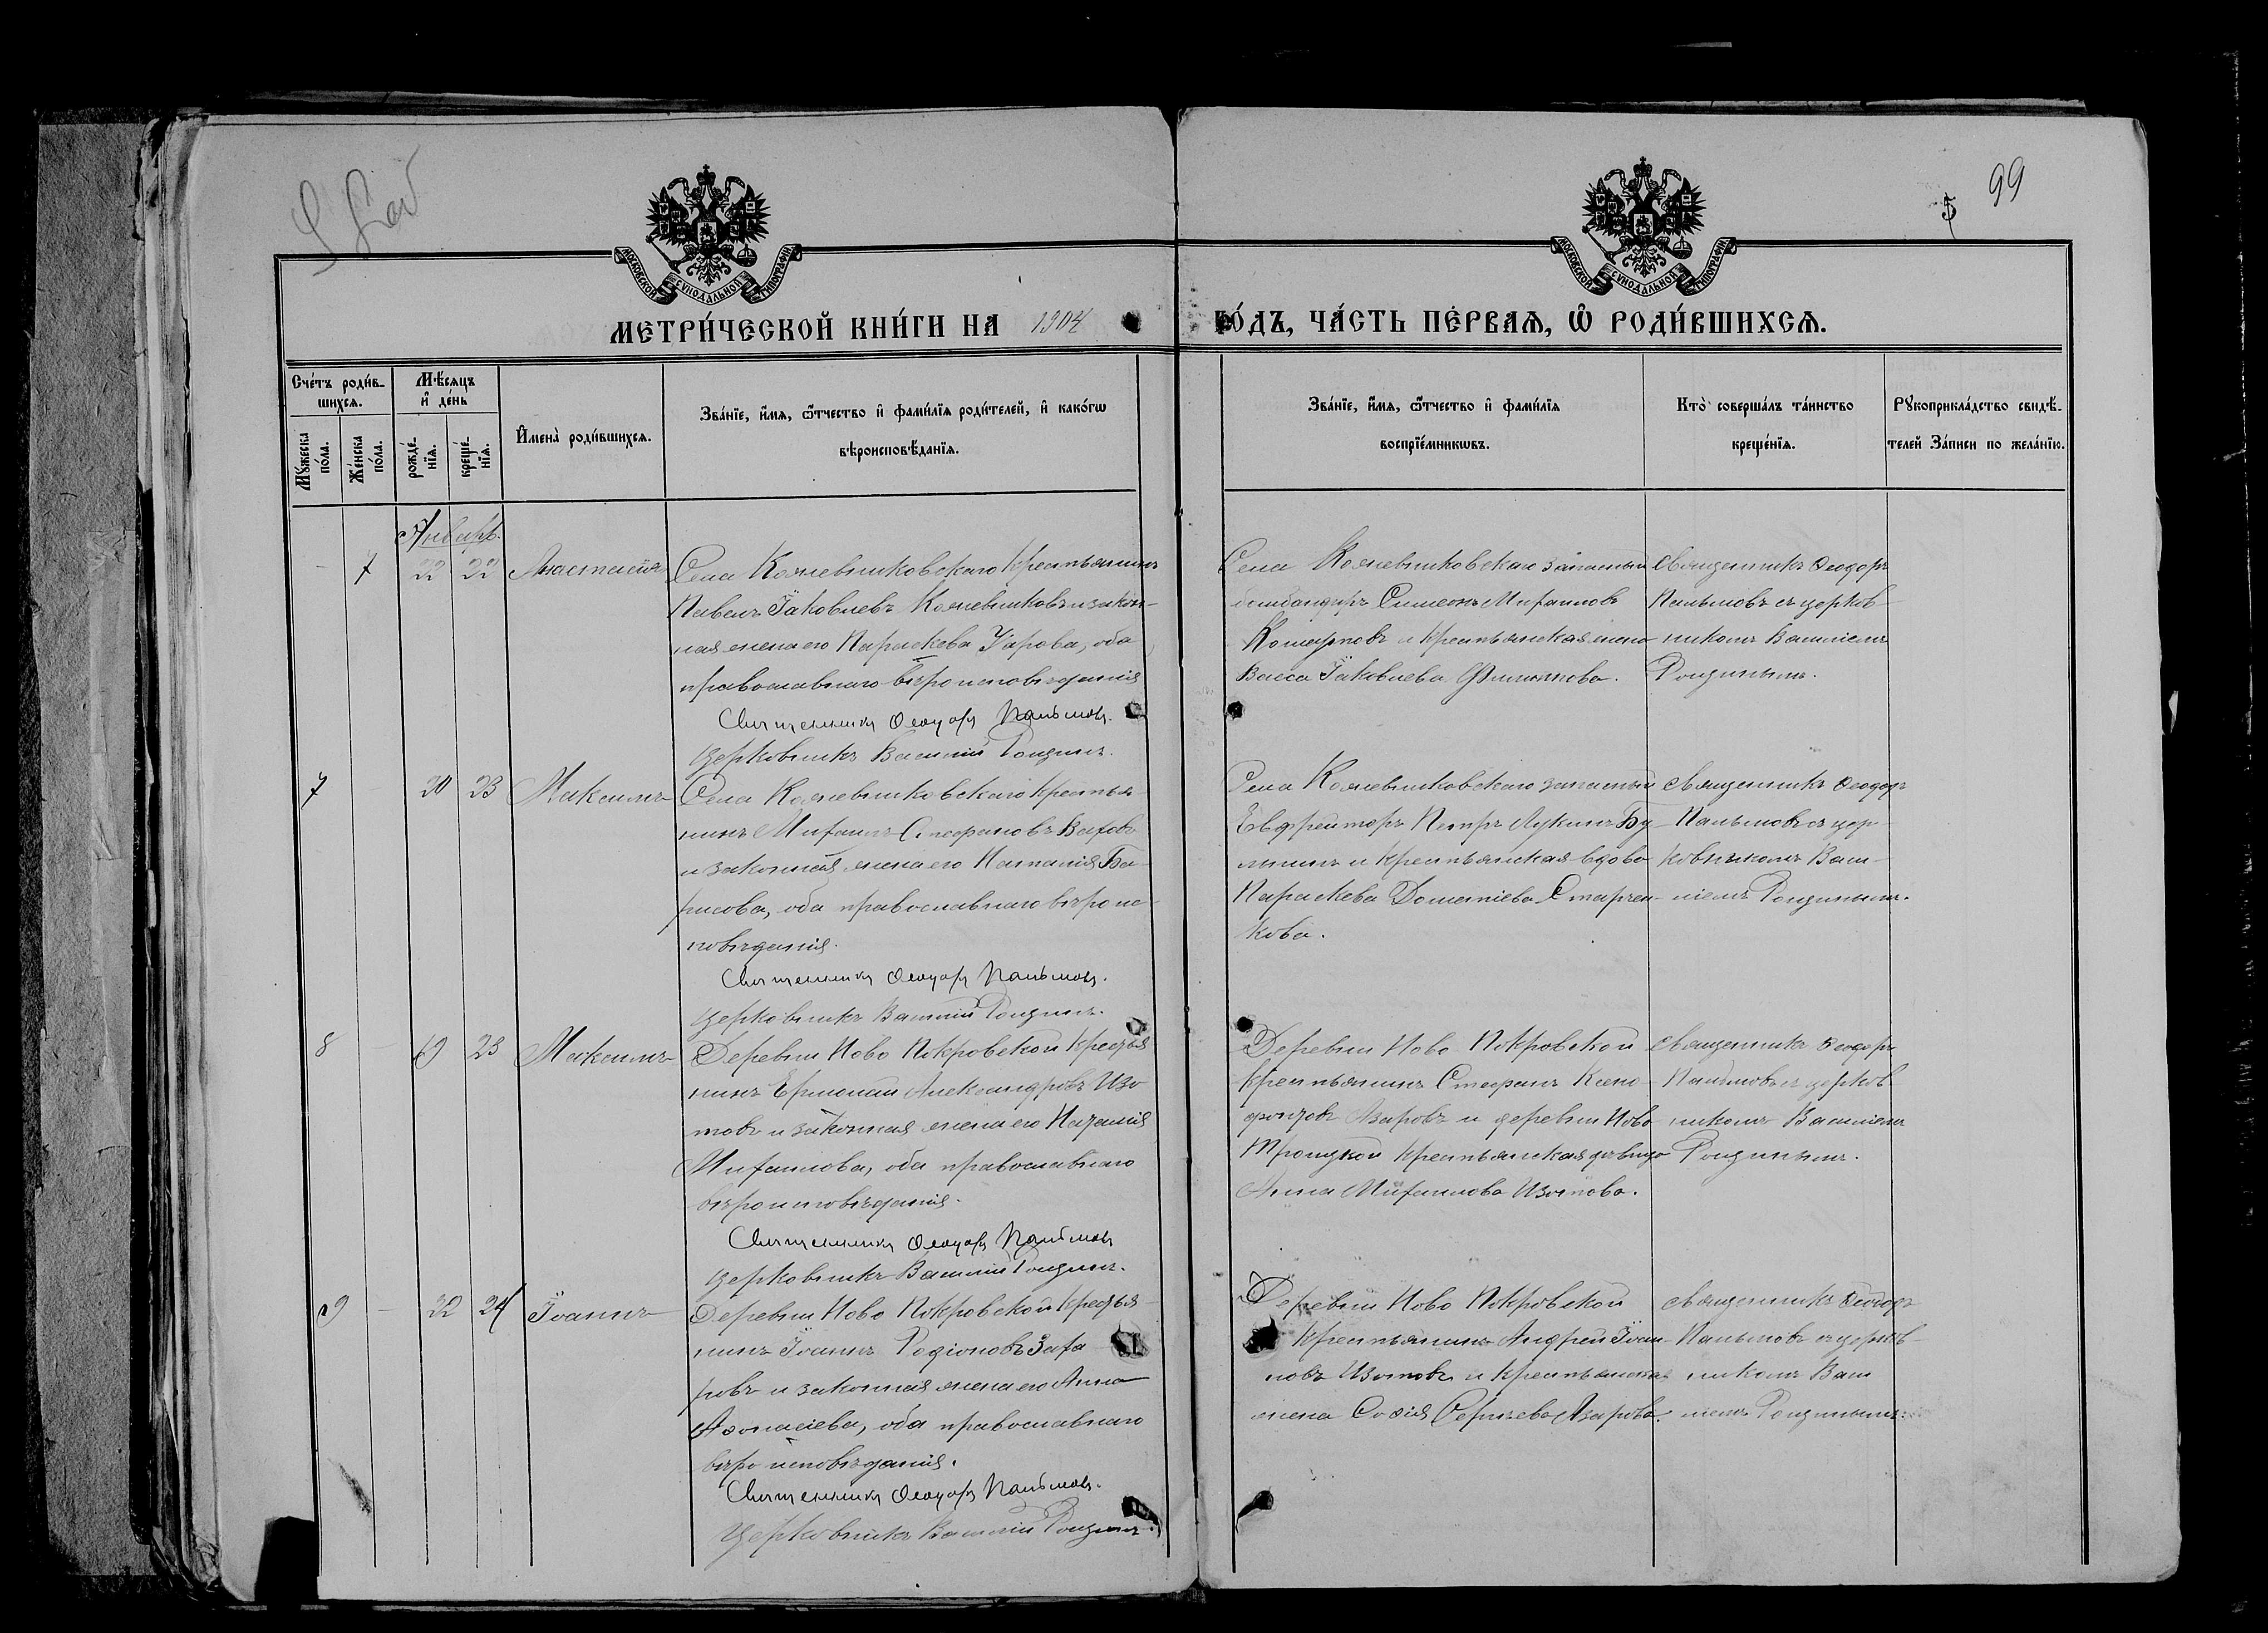 99
5
МОСКОВСКОЙ СѴНОДАЛЬНОЙ ТИПОГРАФІИ
МОСКОВСКОЙ СѴНОДАЛЬНОЙ ТИПОГРАФІИ
МЕТРИ́ЧЕСКОЙ КНИ́ГИ НА 1904 ГО́ДЪ, ЧА́СТЬ ПЕ́РВАѦ, Ѽ РОДИ́ВШИХСѦ.
Сче́тъ роди́в-
шихсѧ.
Мꙋ́жеска по́ла.
Же́нска по́ла.
Мѣ́сѧцъ
и҆ де́нь
рожде́-
нїѧ.
креще́-
нїѧ.
И҆мена̀ роди́вшихсѧ.
Зва́нїе, и҆́мѧ, ѻ҆́тчество и҆ фами́лїѧ роди́телей, и҆ како́гѡ
вѣроисповѣ́данїѧ.
Зва́нїе, и҆́мѧ, ѻ҆́тчество и҆ фами́лїѧ
воспрїе́мникѡвъ.
Кто̀ соверша́лъ та́инство
креще́нїѧ.
Рꙋкоприкла́дство свидѣ́-
телей За́писи по жела́нїю.
Январь.
7 22 22 Анастасія
Села Кожевниковскаго крестьянинъ
Павелъ Іаковлевъ Кожевниковъ и закон-
ная жена его Параскева Уарова, оба
православнаго вѣроисповѣданія
Священникъ Ѳеодоръ Пальмовъ.
Церковникъ Василій Рощинъ.
Села Кожевниковскаго запасный
бомбандиръ Симеонъ Михаиловъ
и крестьянская жена
Васса Іаковлева Филиппова.
Священникъ Ѳеодоръ
Пальмовъ съ церков-
никомъ Василіемъ
Рощинымъ.
7 20 23 Максимъ
Села Кожевниковскаго крестья-
нинъ Михаилъ Стефановъ
и законная жена его Наталія Бо-
рисова, оба православнаго вѣроис-
повѣданія.
Священникъ Ѳеодоръ Пальмовъ.
Церковникъ Василій Рощинъ.
Села Кожевниковскаго запасный
Евфрейторъ Петръ Лукинъ
и крестьянская вдова
Параскева Дометіева Старчен-
кова.
Священникъ Ѳеодоръ
Пальмовъ съ цер-
ковникомъ Васи-
ліемъ Рощинымъ.
8 19 23 Максимъ
Деревни Ново Покровской крестья-
нинъ Ермолай Александровъ Изо-
товъ и законная жена его Наталія
Михаилова, оба православнаго
вѣроисповѣданія.
Священникъ Ѳеодоръ Пальмовъ
Церковникъ Василій Рощинъ.
Деревни Ново Покровской
крестьянинъ Стефанъ Ксено-
фонтовъ Азаровъ и деревни Ново
Троицкой крестьянская дѣвица
Анна Михаилова Изотова.
Священникъ Ѳеодоръ
Пальмовъ съ церков-
никомъ Василіемъ
Рощинымъ.
9 22 24 Іоаннъ
Деревни Ново Покровской крестья-
нинъ Іоаннъ Родіоновъ Заха-
ровъ и законная жена его Анна
Аѳонасіева, оба православнаго
вѣроисповѣданія.
Священникъ Ѳеодоръ Пальмовъ.
Церковникъ Василій Рощинъ.
Деревни Ново Покровской
крестьянинъ Андрей Іоан-
новъ Изотовъ и крестьянская
жена Софія Сергіева Азарова.
Священникъ Ѳеодоръ
Пальмовъ съ церков-
никомъ Васи-
ліемъ Рощинымъ.